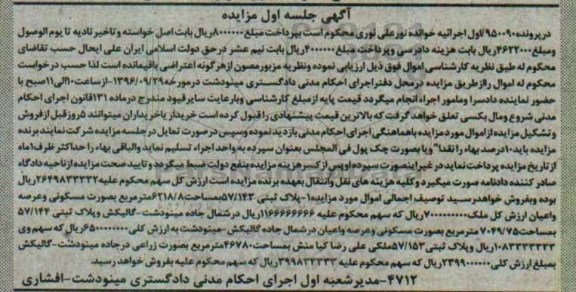 آگهی جلسه اول مزایده
درپرونده۹۵۰۰۹۰/اول اجرائیه خوانده نورعلی نوری محکوم است بپرداخت مبلغ۸۰۰۰۰۰۰۰ریال بابت اصل خواسته و تاخیر تادیه تا یوم الوصول
ومبلغ۴۶۲۲۰۰۰ریال بابت هزینه دادرسی وپرداخت مبلغ۴۰۰۰۰۰۰ریال بابت نیم عشر درحق دولت اسلامی ایران علی ایحال حسب تقاضای
محکوم له طبق نظریه کارشناسی اموال فوق ذیل ارزیابی نموده ونظریه مزبورمصون ازهرگونه اعتراضی باقیمانده است لذا حسب درخواست
محکوم له اموال راازطریق مزایده درمحل دفتراجرای احکام مدنی دادگستری مینودشت درمورخه۱۳۹۶/۰۹/۲۹-ازساعت۱۰الی۱۱صبح با
حضور نماینده دادسرا ومامور اجراء انجام میگردد قیمت پایه ازمبلغ کارشناسی وبارعایت سایرقیود مندرج درماده ۱۳۱قانون اجرای احکام
مدنی شروع ومال بکسی تعلق خواهد گرفت که بالاترین قیمت پیشنهادی راقبول کرده است خریدار یاخریداران میتوانند ۵روزقبل ازفروش
و تشکیل مزایده ازاموال موردمزایده باهماهنگی اجرای احکام مدنی بازدیدنموده وسپس درصورت تمایل درجلسه مزایده شرکت نمایند برنده
مزایده باید۱۰درصد بهاء رانقدا" ویا بصورت چک پول فی المجلس بعنوان سپرده به واحد اجراء تسلیم نماید والباقی بهاء راحداکثر ظرف۱ماه
ازتاریخ مزایده پرداخت نماید در غیراینصورت سپرده اوپس ازکسرهزینه مزایده بنفع دولت ضبط میگردد وتایید صحت مزایده ازناحیه دادگاه
صادر کننده دادنامه صورت میگیرد وکلیه هزینه های نقل وانتقال بعهده برنده مزایده است ارزش کل سهم محکوم علیه۲۶۴۹۸۳۳۳۳۲ریال
بوده وبفروش خواهدرسید توصیف اجمالی اموال مورد مزایده:۱-پلاک ثبتی ۵۷/۱۴۳بمساحت۶۲۱۸/۸مترمربع بصورت مسکونی وعرصه
واعیان ارزش کل ملک۷۰۰۰۰۰۰۰۰۰ریال که سهم محکوم علیه ۱۱۶۶۶۶۶۶۶۶ریال درشمال جاده مینودشت-گالیکش وپلاک ثبتی ۵۷/۱۴۴
بمساحت۷۰۴۹/۷۵مترمربع بصورت مسکونی وعرصه واعیان درشمال جاده گالیکش-مینودشت به ارزش کلی۶۵۰۰۰۰۰۰۰۰ریال که سهم وی
۱۰۸۳۳۳۳۳۳۳ریال وپلاک ثبتی ۵۷/۱۵۳ملکی علی رضا کیا منش بمساحت۴۶۷۸۰مترمربع بصورت زراعی درجاده مینودشت-گالیکش
بمبلغ ارزش کلی ۲۳۹۹۰۰۰۰۰۰ریال که سهم محکوم علیه ۳۹۹۸۳۳۳۳۳ریال که سهم محکوم علیه بفروش خواهد رسید.
۴۷۱۲-مدیرشعبه اول اجرای احکام مدنی دادگستری مینودشت-افشاری